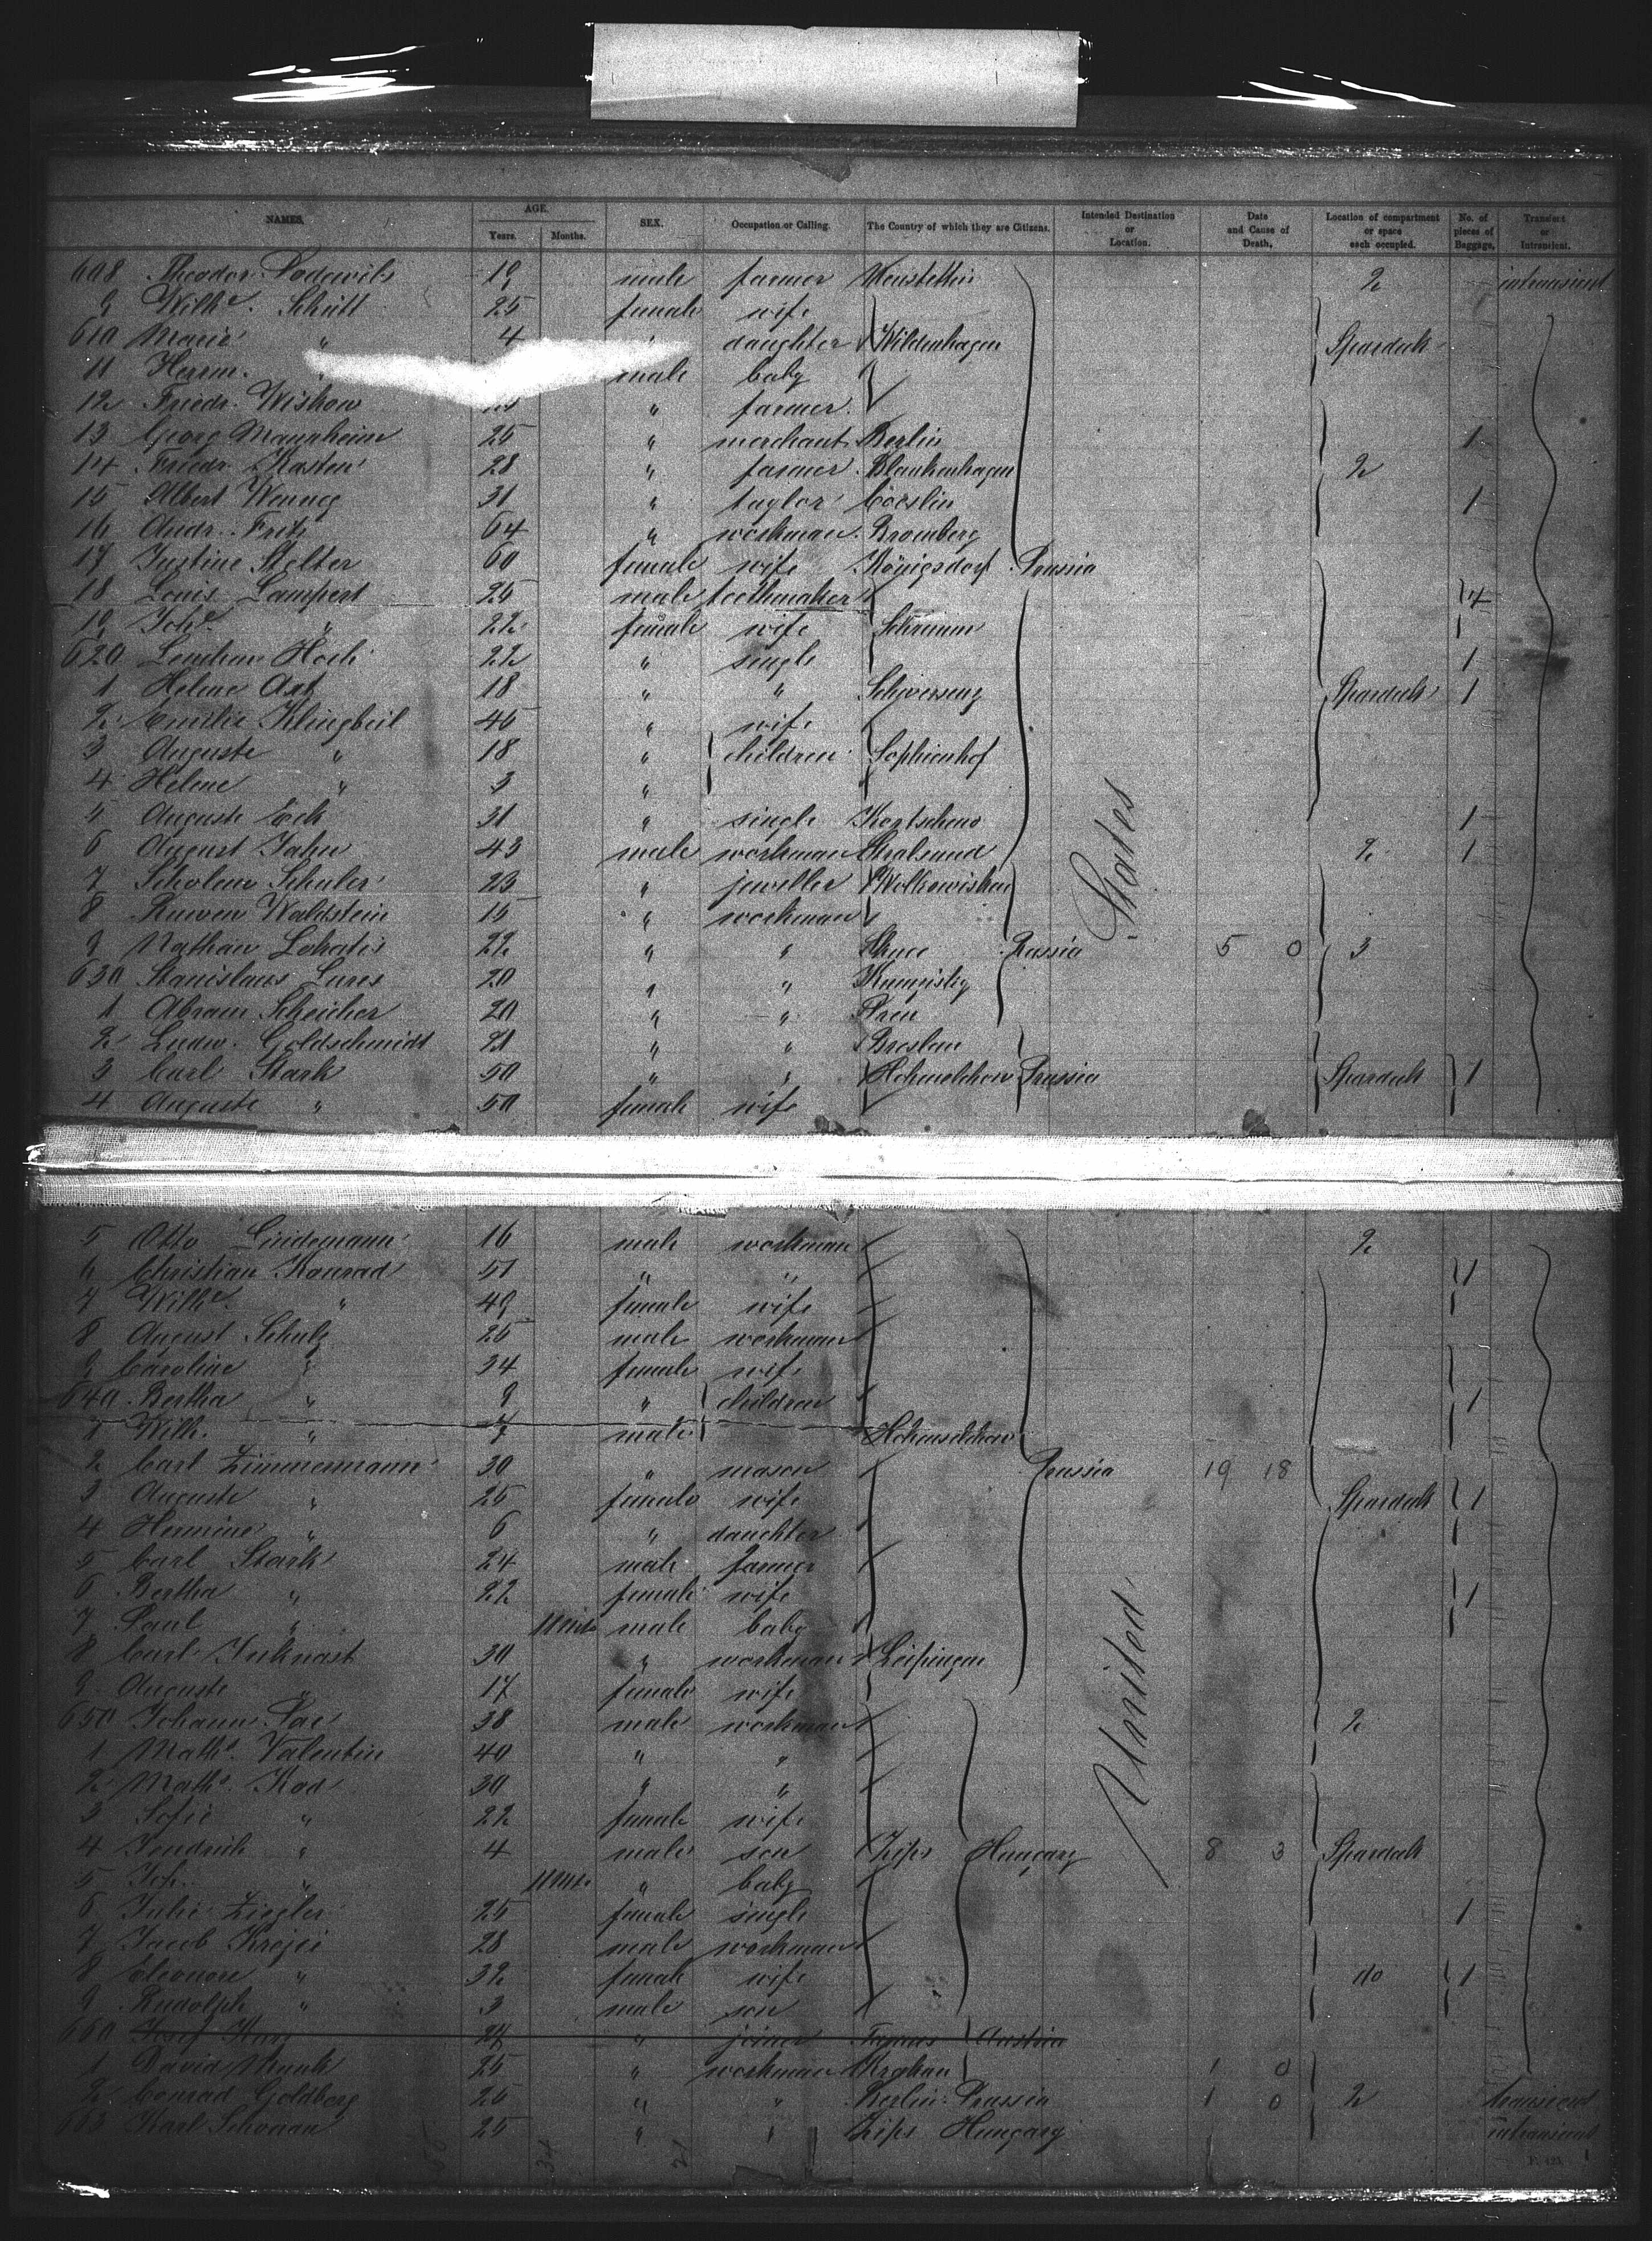 NAMES. AGE. SEX. Occupation or Calling. The Country of which they are Citizens. Intended Destination or Location. Date and Cause of Death. Location of compartment or space each occupied. No. of pieces of Baggage. Transient or Intransient.
Years. Months.
608 Theodor Podewils 19 male farmer Neustettin 2 intransient
9 Wilhe. Schütt 25 female wife
610 Marie " 4 " daughter Wildenhagen Spardeck
11 Herrm. male baby
12 Friedr. Wiskow " farmer
13 Georg Mannheim 25 " merchant Berlin 1
14 Friedr. Kasten 28 " farmer Blankenhagen 2
15 Albert Wenneg 31 " taylor Coeslin 1
16 Andr. Fritz 64 " workman Bromberg
17 Justine Stelter 60 female wife Königsdorf Prussia
18 Louis Lampert 25 male toothmaker 4
19 Johe. " 22 female wife Schrimm
620 Hock 22 " single 1
1 Helene Axt 18 " " Schwersenz Spardeck 1
2 Emilie Klingbeil 45 " wife
3 Auguste " 18 " children Sophienhof
4 Helene " 3 "
5 Auguste Eck 31 " single 1
6 August Jahn 43 male workman Stralsund 2 1
7 Scholem Schuler 23 " jeweller Wilkowisken
8 Ruwen Waldstein 15 " workman States
9 Nathan 22 " " Russia 5 0 3
630 Stanislaus 20 " "
1 Abram Scheicher 20 " " Pren
2 Ludw. Goldschmidt 21 " " Breslau
3 Carl Stark 50 " " Hohenselchow Prussia Spardeck 1
4 Auguste " 50 female wife
5 Otto Lindemann 16 male workman 2
6 Christian Konrad 51 " " 1
7 Wilhe. " 49 female wife
8 August Schulz 25 male workman
9 Caroline " 34 female wife
640 Bertha " 9 " children 1
1 Wilh. " 7 male Hohenselchow
2 Carl Zimmermann 30 " mason Prussia 19 18
3 Auguste " 25 female wife Spardeck 1
4 Hermine " 6 " daughter
5 Carl Stark 24 male farmer
6 Bertha " 22 female wife 1
7 Paul " 11 mths male baby
8 Carl 30 " workman
9 Auguste " 17 female wife United
650 Johann 38 male workman 2
1 Maths. Valentin 40 " "
2 Maths. Kad 30 " "
3 Sofie " 22 female wife
4 " 4 male son Zips Hungary 8 3 Spardeck
5 Joh. " 11 mths " baby
6 Julie Ziegler 25 female single 1
7 Jacob Krejci 28 male workman
8 Eleonore " 32 female wife do 1
9 Rudolph " 3 male son
660 24 " joiner Austria
1 David Munk 25 " workman Krakau 1 0
2 Conrad Goldberg 26 " " Berlin Prussia 1 0 2 transient
663 Karl 25 " " Zips Hungary intransient